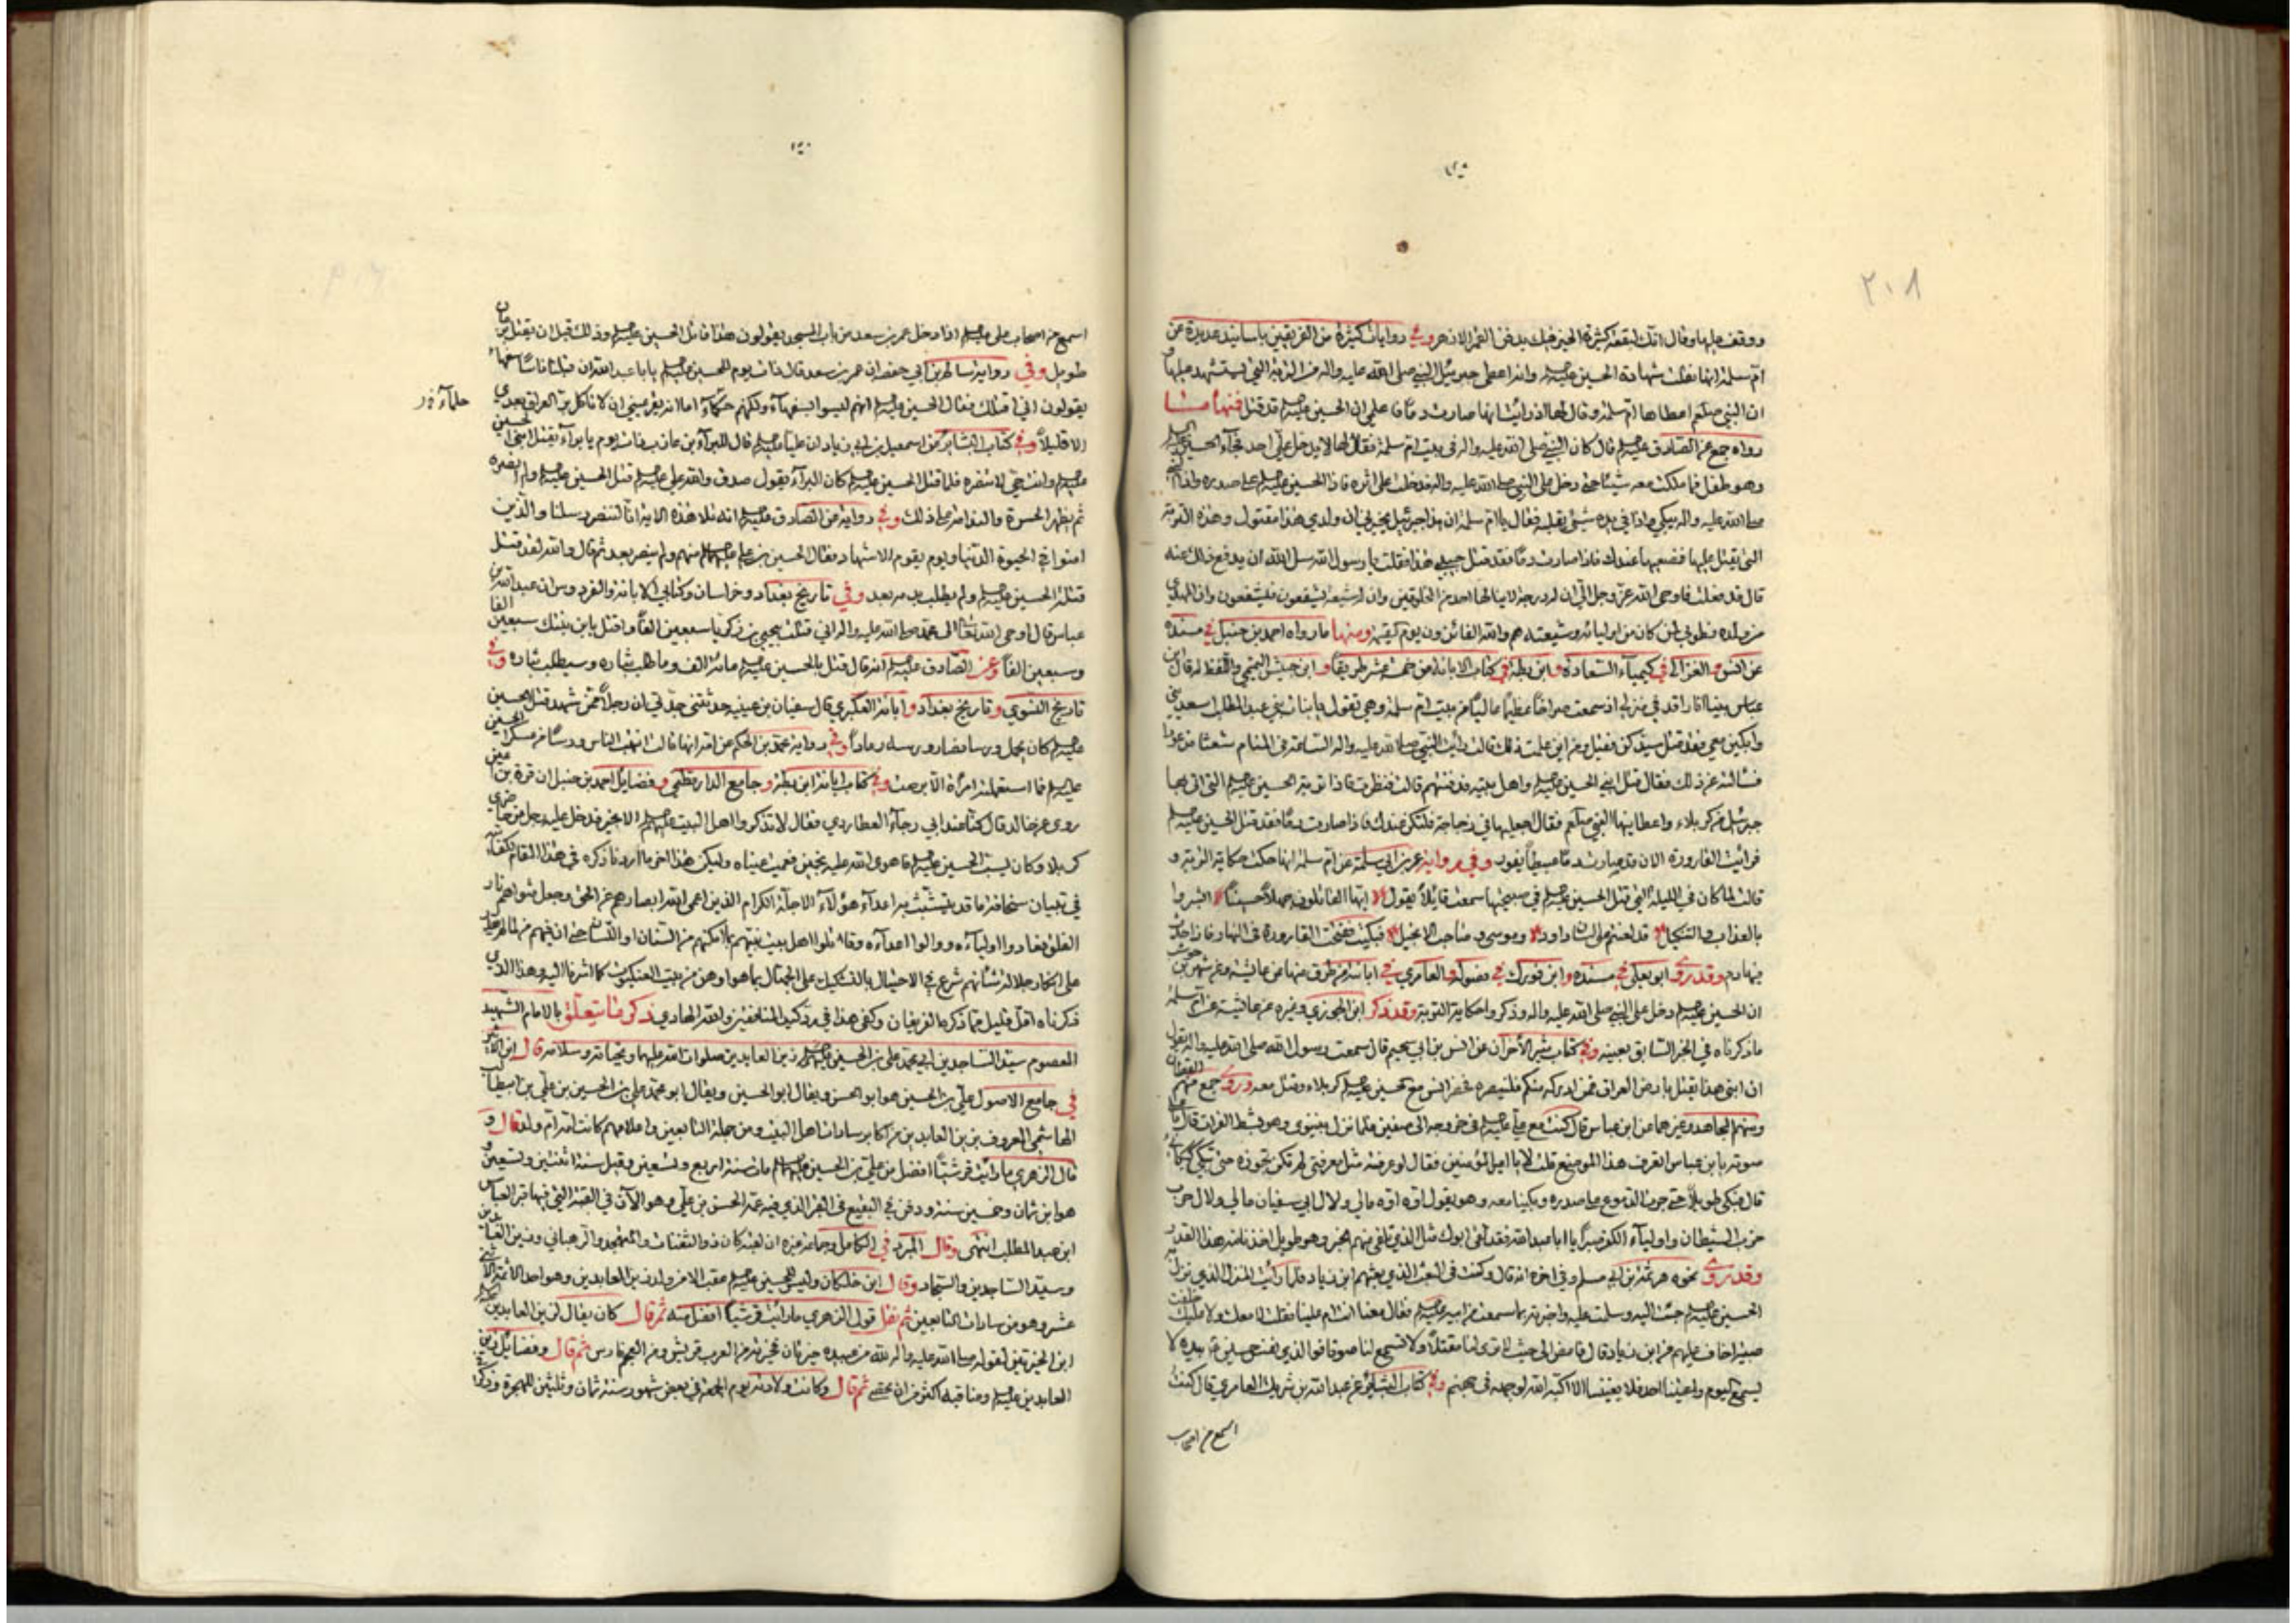 ٢٠٨
ووقف عليها وقال انك لبقعة كثيرة الخير فيك يدفن القمر الازهر وفي روايات كثيرة من الفريقين باسانيد عديدة عن
ام سلمة انها نقلت شهادة الحسين عليه السلم وانه اعطى جبرئيل النبي صلى الله عليه واله من التربة التي يستشهد عليها
ان النبي صلعم اعطاها ام سلمة وقال لها اذا رأيتها صارت دما فاعلمي ان الحسين عليه السلم قد قتل فمنها ما
رواه جمع عن الصادق عليه السلم قال كان النبي صلى الله عليه واله في بيت ام سلمة فقال لها لا يدخل علي احد فجاء الحسين عليه السلم
وهو طفل فما ملكت معه شيئا حتى دخل على النبي صلى الله عليه واله فدخلت على اثره فاذا الحسين عليه السلم على صدره واذا النبي
صلى الله عليه واله يبكي واذا في يده شيء يقلبه فقال يا ام سلمة ان هذا جبرئيل يخبرني ان ولدي هذا مقتول وهذه التربة
التي يقتل عليها فضعيها عندك فاذا صارت دما فقد قتل حبيبي هذا فقلت يا رسول الله سل الله ان يدفع ذلك عنه
قال قد فعلت فاوحى الله عز وجل الي ان له درجة لا ينالها احد من المخلوقين وان له شيعة يشفعون فيشفعون وان المهدي
من ولده فطوبى لمن كان من اوليائه وشيعته هم والله الفائزون يوم القيمة ومنها ما رواه احمد بن حنبل في مسنده
عن انس والغزالي في كيمياء السعادة وابن بطة في كتاب الابانة من خمسة عشر طريقا وابن حبيش التميمي واللفظ له قال ابن
عباس بينا انا راقد في منزلي اذ سمعت صراخا عظيما عاليا من بيت ام سلمة وهي تقول يا بنات عبد المطلب اسعديني
وابكين معي فقد قتل سيدكن فقيل ومن اين علمت ذلك قالت رأيت النبي صلى الله عليه واله الساعة في المنام شعثا مذعورا
فسألته عن ذلك فقال قتل ابني الحسين عليه السلم واهل بيته فدفنتهم قالت فنظرت فاذا تربة الحسين عليه السلم التي اتى بها
جبرئيل من كربلاء واعطانيها النبي صلعم فقال اجعليها في زجاجة فلتكن عندك فاذا صارت دما فقد قتل الحسين عليه السلم
فرأيت القارورة الان قد صارت دما عبيطا يفور وفي رواية عن ابي سلمة عن ام سلمة انها حكت حكاية التربة و
قالت لما كان في الليلة التي قتل الحسين عليه السلم في صبيحتها سمعت قايلا يقول ايها القاتلون جهلا حسينا ابشروا
بالعذاب والتنكيل قد لعنتم على لسان داود وموسى وصاحب الانجيل فبكيت ففتحت القارورة في النهار فاذا حدث
بها دم وقد روى ابو يعلى في مسنده وابن فورك في فصوله والعامري في ابانته من طرق منها عن عايشة وعن شهر بن حوشب
ان الحسين عليه السلم دخل على النبي صلى الله عليه واله وذكروا حكاية التربة وقد ذكر ابن الجوزي وغيره عن عايشة عن ام سلمة
ما ذكرناه في الخبر السابق بعينه وفي كتاب مثير الاحزان عن انس بن ابي سحيم قال سمعت رسول الله صلى الله عليه واله يقول
ان ابني هذا يقتل بارض العراق فمن ادركه منكم فلينصره فحضر انس مع الحسين عليه السلم كربلاء وقتل معه وروى جمع منهم
ومنهم المجاهد وغيرهما عن ابن عباس قال كنت مع علي عليه السلم في خروجه الى صفين فلما نزل بنينوى وهو بشط الفرات قال باعلى
صوته يا بن عباس اتعرف هذا الموضع قلت لا يا امير المؤمنين فقال لو عرفته مثل معرفتي لم تكن تجوزه حتى تبكي كبكائي
قال فبكى طويلا حتى جرت الدموع على صدره وبكينا معه وهو يقول اوه اوه مالي ولال ابي سفيان مالي ولال حرب
حزب الشيطان واولياء الكفر صبرا يا ابا عبد الله فقد لقي ابوك مثل الذي تلقى منهم الخبر وهو طويل اخذنا منه هذا القدر
وقد روى نحوه هرثمة بن ابي مسلم وفي اخره انه قال وكنت في البعث الذي بعثهم ابن زياد فلما رأيت المنزل الذي نزل به
الحسين عليه السلم جئت اليه وسلمت عليه واخبرته بما سمعت من ابيه عليه السلم فقال معنا انت ام علينا فقلت لا معك ولا عليك خلفت
صبية اخاف عليهم من ابن زياد قال فامض الى حيث لا ترى لنا مقتلا ولا تسمع لنا صوتا فوالذي نفس حسين بيده لا
يسمع اليوم واعيتنا احد فلا يعيننا الا اكبه الله لوجهه في جهنم وفي كتاب عن عبد الله بن شريك العامري قال كنت
اسمع من اصحاب
اسمع من اصحاب علي عليه السلم اذا دخل عمر بن سعد من باب المسجد يقولون هذا قاتل الحسين عليه السلم وذلك قبل ان يقتل بزمان
طويل وفي رواية سالم بن ابي حفصة ان عمر بن سعد قال ذات يوم للحسين عليه السلم يا ابا عبد الله ان قبلنا ناسا سفهاء
يقولون اني اقتلك فقال الحسين عليه السلم انهم ليسوا بسفهاء ولكنهم حكماء اما انه يقر عيني ان لا تأكل بر العراق بعدي
حلماء
الا قليلا وفي كتاب عن اسمعيل بن ابي زياد ان عليا عليه السلم قال للبراء بن عازب ذات يوم يا براء يقتل ابني الحسين
عليه السلم وانت حي لا تنصره فلما قتل الحسين عليه السلم كان البراء يقول صدق والله علي عليه السلم قتل الحسين عليه السلم ولم انصره
ثم يظهر الحسرة والندامة على ذلك وفي رواية عن الصادق عليه السلم انه تلا هذه الاية انا لننصر رسلنا والذين
امنوا في الحيوة الدنيا ويوم يقوم الاشهاد فقال الحسين بن علي عليهما السلم منهم ولم ينصر بعد ثم قال والله لقد قتل
قتلة الحسين عليه السلم ولم يطلب بدمه بعد وفي تاريخ بغداد وخراسان وكتابي الابانة والفردوس ان عبد الله بن
عباس قال اوحى الله تعالى الى محمد صلى الله عليه واله اني قتلت بيحيى بن زكريا سبعين الفا واقتل بابن بنتك سبعين الفا
وسبعين الفا وعن الصادق عليه السلم انه قال قتل بالحسين عليه السلم مائة الف وما طلب بثاره وسيطلب بثاره وفي
تاريخ النسوي وتاريخ بغداد وابانة العكبري قال سفيان بن عيينة حدثتني جدتي ان رجلا ممن شهد قتل الحسين
عليه السلم كان يحمل ورسا فصار ورسه رمادا وفي رواية محمد بن الحكم عن امه انها قالت انتهب الناس ورسا من عسكر الحسين
عليه السلم فما استعملته امرأة الا برصت وفي كتاب ابانة ابن بطة وجامع الدار قطني وفضايل احمد بن حنبل ان قرة بن اعين
روى عن خالد قال كنا عند ابي رجاء العطاردي فقال لا تذكروا اهل البيت عليهم السلم الا بخير فدخل عليه رجل من حاضري
كربلا وكان يسب الحسين عليه السلم فاهوى الله عليه بنجمين فعميت عيناه وليكن هذا اخر ما اردنا ذكره في هذا المقام
في تبيان سخافة ما قد يتشبث به اعداء هؤلاء الاجلة الكرام الذين اعمى الله ابصارهم عن الحق
فعادوا اولياءه ووالوا اعداءه وقاتلوا اهل بيت نبيهم بما امكنهم من السنان او اللسان حتى ان منهم
على انكار جلالة شأنهم شرع في الاحتيال بالتشكيك على الجهال بما هو اوهن من بيت العنكبوت كما اشرنا اليه وهذا الذي
ذكرناه اقل قليل مما ذكره الفريقان وكفى هذا في والله الهادي ذكر ما يتعلق بالامام الشهيد
المعصوم سيد الساجدين ابي محمد علي بن الحسين عليهما السلم زين العابدين صلوات الله عليهما وتحياته وسلامه قال ابن الاثير
في جامع الاصول علي بن الحسين هو ابو الحسن ويقال ابو الحسين ويقال ابو محمد علي بن الحسين بن علي بن ابيطالب
الهاشمي المعروف بزين العابدين من اكابر سادات اهل البيت ومن جلة التابعين واعلامهم كانت امه ام ولد قال و
قال الزهري ما رأيت قرشيا افضل من علي بن الحسين عليهما السلم مات سنة اربع وتسعين وقيل سنة اثنتين وتسعين و
هو ابن ثمان وخمسين سنة ودفن في البقيع في القبر الذي فيه عمه الحسن بن علي وهو الآن في القبة التي فيها قبر العباس
ابن عبد المطلب انتهى وقال المبرد في الكامل وجماعة غيره ان لقبه كان ذو الثفنات والمتهجد والرهباني وزين العابدين
وسيد الساجدين والسجاد وقال ابن خلكان وليس للحسين عليه السلم عقب الا من ولد زين العابدين وهو احد الائمة الاثني
عشر وهو من سادات التابعين ثم نقل قول الزهري ما رأيت قرشيا افضل منه ثم قال كان يقال لزين العابدين
ابن الخيرتين لقوله صلى الله عليه واله لله من عباده خيرتان فخيرته من العرب قريش ومن العجم فارس ثم قال وفضائل زين
العابدين عليه السلم ومناقبه اكثر من ان تحصى ثم قال وكانت ولادته يوم الجمعة في بعض شهور سنة ثمان وثلثين للهجرة وذكر